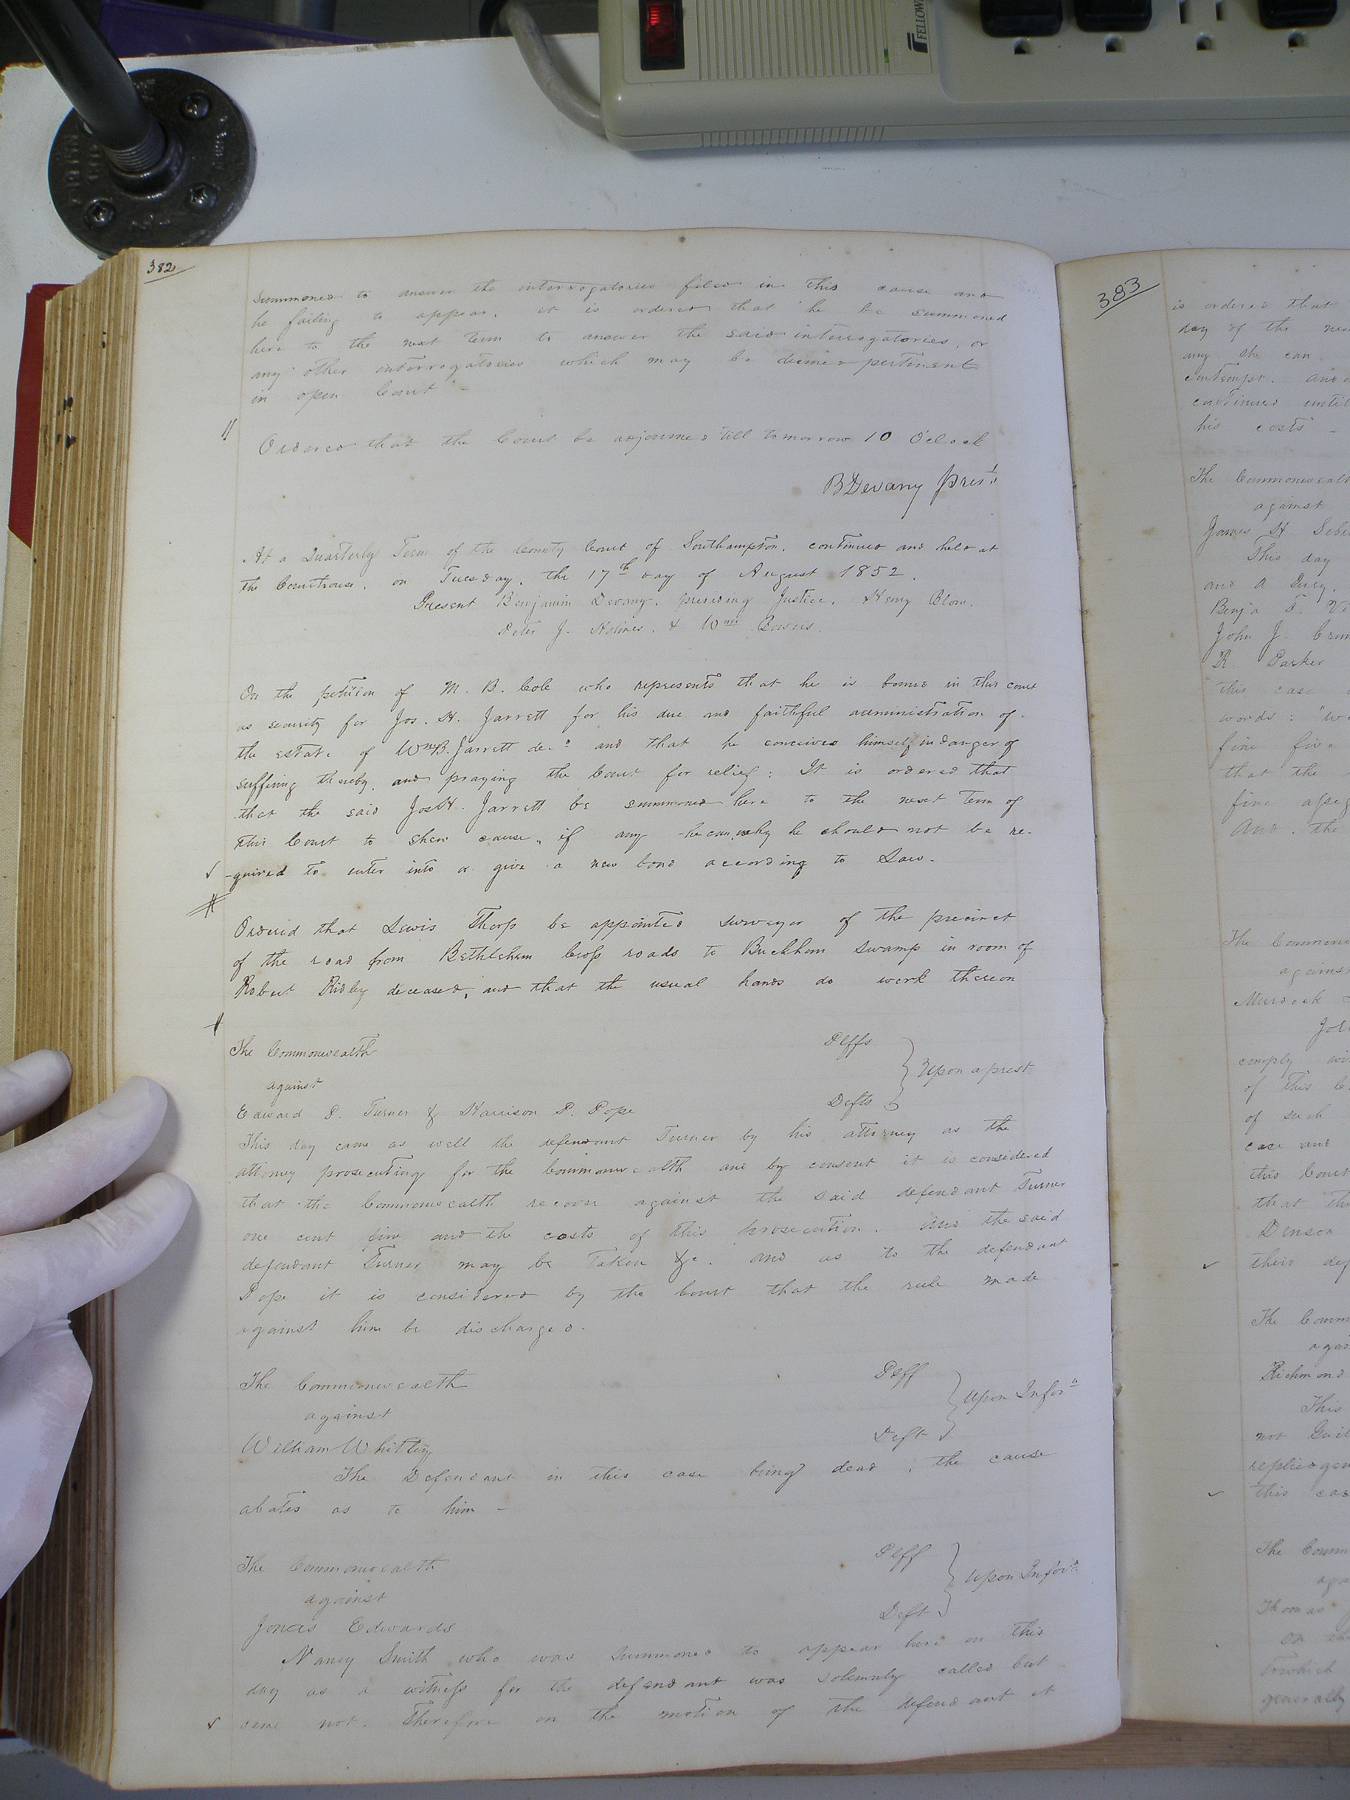 382
summoned to answer the interrogatories filed in this cause and
he failing to appear, it is ordered that he be summoned
here to the next term to answer the said interrogatories, or
any other interrogatories which may be deemed pertinent
in open Court -
Ordered that the Court be adjourned till tomorrow 10 OClock
B Devany Prest
At a Quarterly Term of the County Court of Southampton, continued and held at
the Courthouse, on Tuesday, the 17th day of August 1852.
Present Benjamin Devany, presiding Justice, Henry Blow,
Peter J. Holmes, &
On the petition of M. B. Cole who represents that he is bound in this court
as security for Jos. H. Jarrett for his due and faithful administration of
the estate of Wm B. Jarrett decd and that he conceives himself in danger of
suffering thereby, and praying the Court for relief: It is ordered that
that the said Jos H. Jarrett be summoned here to the next Term of
this Court to shew cause, if any he can, why he should not be re-
-quired to enter into or give a new bond according to Law.
Ordered that Lewis Thorp be appointed surveyor of the precinct
of the road from Bethlehem Cross roads to Buckhorn Swamp in room of
Robert Ridley deceased, and that the usual hands do work thereon
The Commonwealth Plffs
against Upon a prest
Edward P. Turner & Harrison P. Pope Defts
This day came as well the defendant Turner by his attorney as the
attorney prosecuting for the Commonwealth and by consent it is considered
that the Commonwealth recover against the said defendant Turner
one cent fine and the costs of this prosecution. And the said
defendant Turner may be Taken &c. and as to the defendant
Pope it is considered by the Court that the rule made
against him be discharged.
The Commonwealth Plff
against Upon Inforn
William Whitley Deft
The Defendant in this case being dead, the cause
abates as to him -
The Commonwealth Plff
against Upon Inforn
Jonas Edwards Deft
Nancy Smith who was summoned to appear here on this
day as a witness for the defendant was solemnly called but
came not. Therefore on the motion of the defendant it
383
is ordered that
day of the
any she can
contempt. and
continued until
his costs -
The Commonwealth
against
James H.
This day
and a Jury,
Benja
John J.
R. Parker
this case
words: "We
fine five
that the
fine
And, the
The Commonwe
against
comply
of this
of such
case and
this Court
that
Denson
their
The Comm
Richmond
This
not Guil
this
The Comm
Thomas
generally
FELLOW